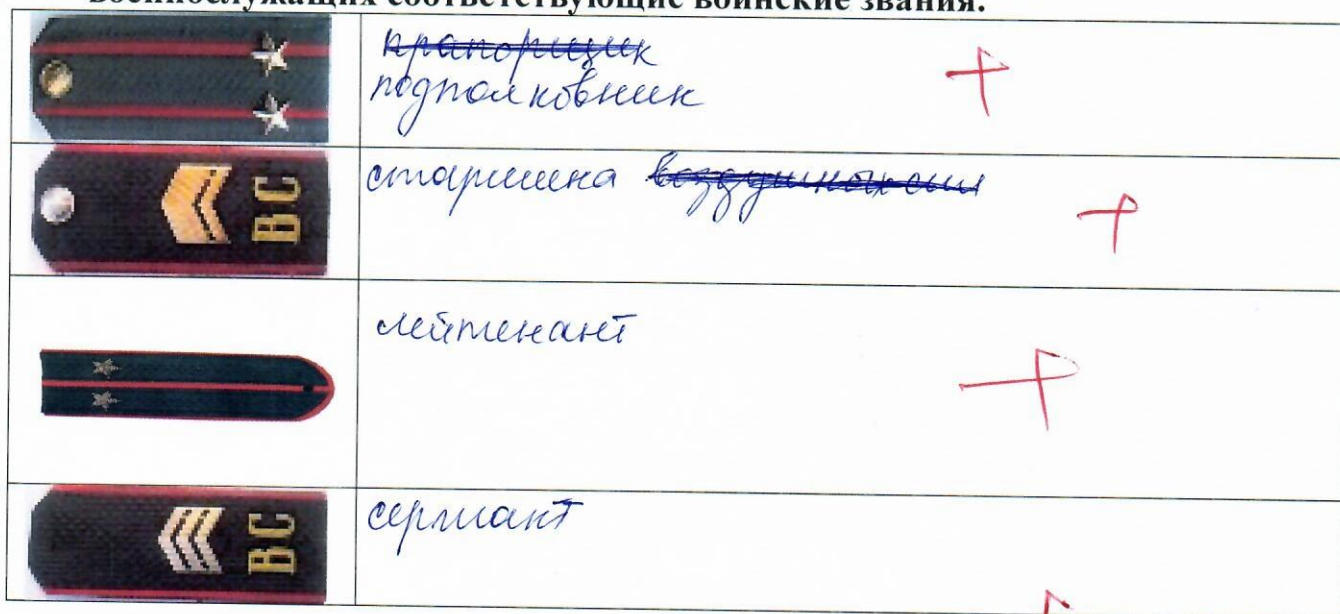 военнослужащих соответствующие воинские звания.
прапорщик
подполковник
ВС
старшина воздушных сил
лейтенант
ВС
сержант